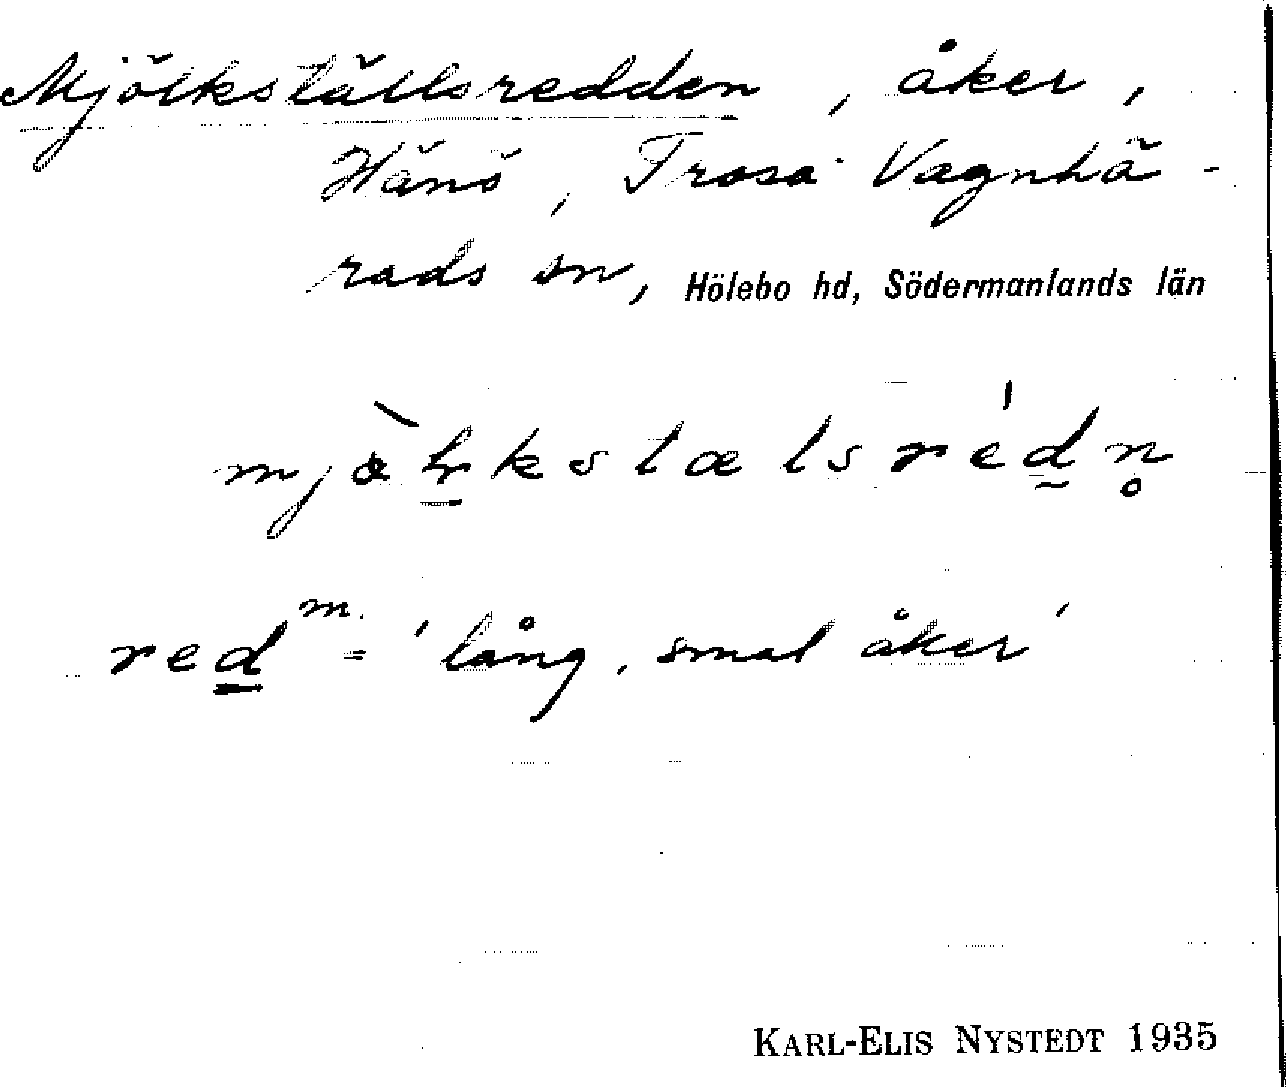 Mjölkställsredden, åker,
Hånö, Trosa-Vagnhä-
rads sn, Hölebo hd, Södermanlands län
red m. = 'lång, smal åker'
KARL-ELIS NYSTEDT 1935